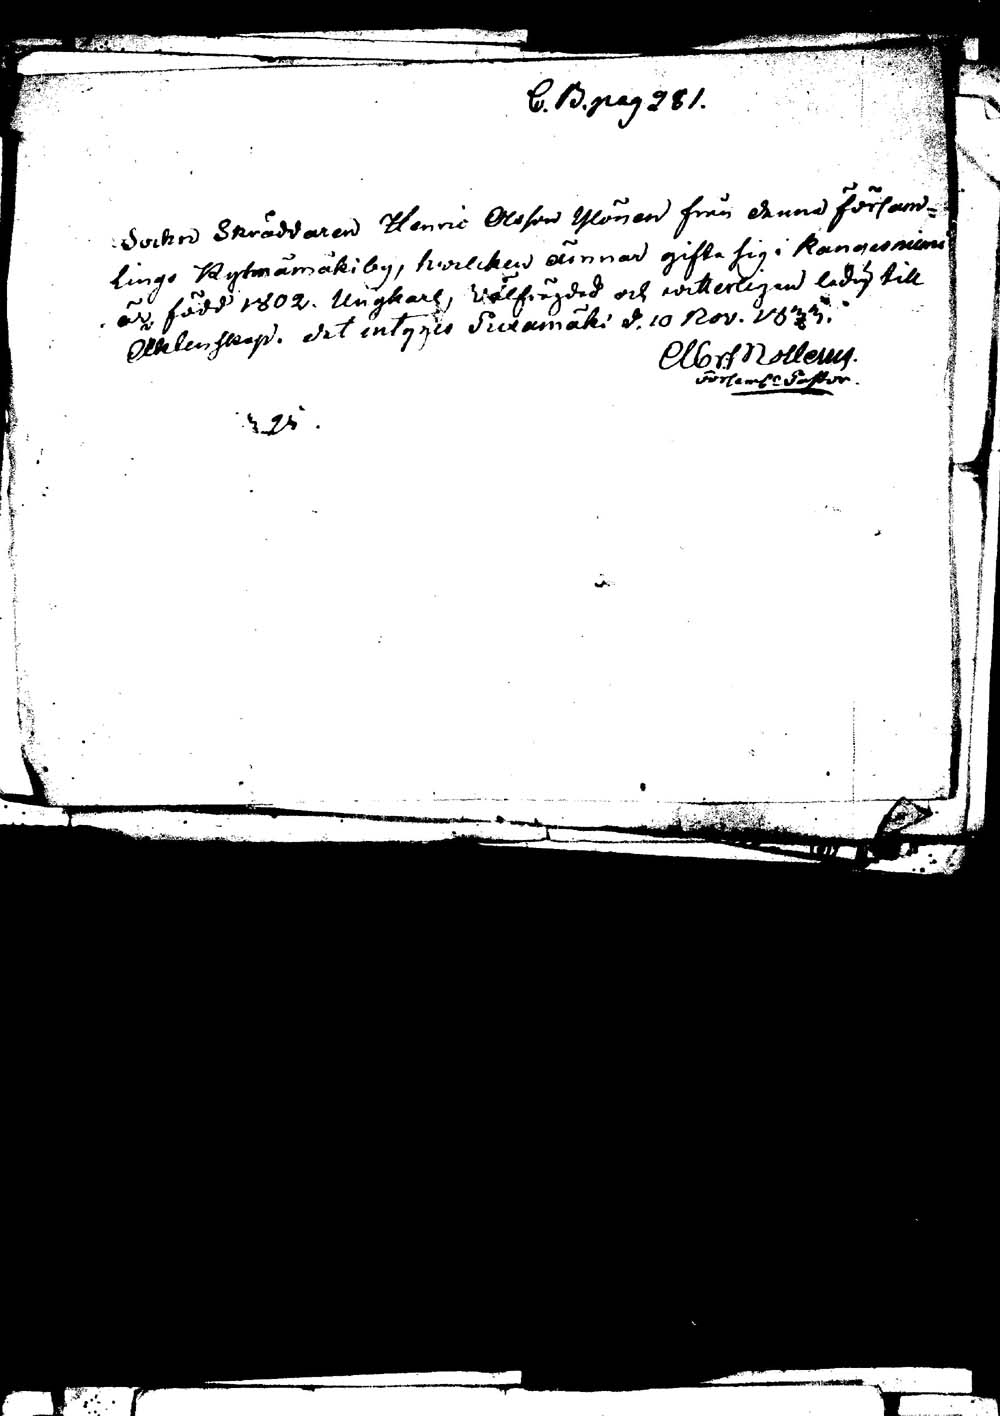 C. B. pag 281.
Sockne Skräddaren Henric Olsson Ylönen från denna försam=
lings Kytmämäki by, hvilcken ämnar gifta sig i Kangasniemi
är född 1802. Ungkarl, välfrägdad och witterligen ledig till
Äktenskap. det intygas Puramäki d. 10 Nov. 1833.
Nollerus.
Församls Pastor.
25.